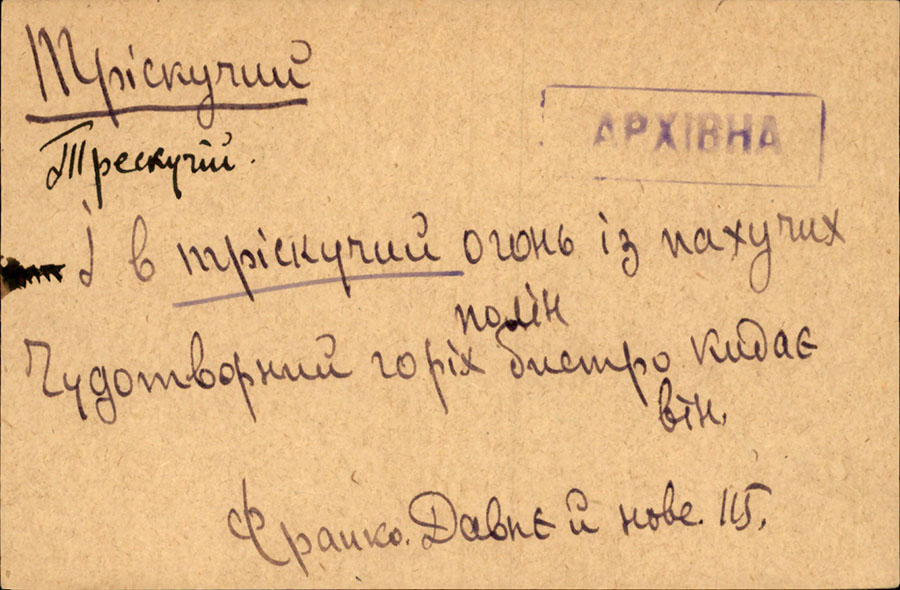 Тріскучий
АРХІВНА
Трескучій.
І в тріскучий огонь із пахучих
полін
Чудотворний горіх бистро кидає
він.
Франко. Давнє й нове. 115.